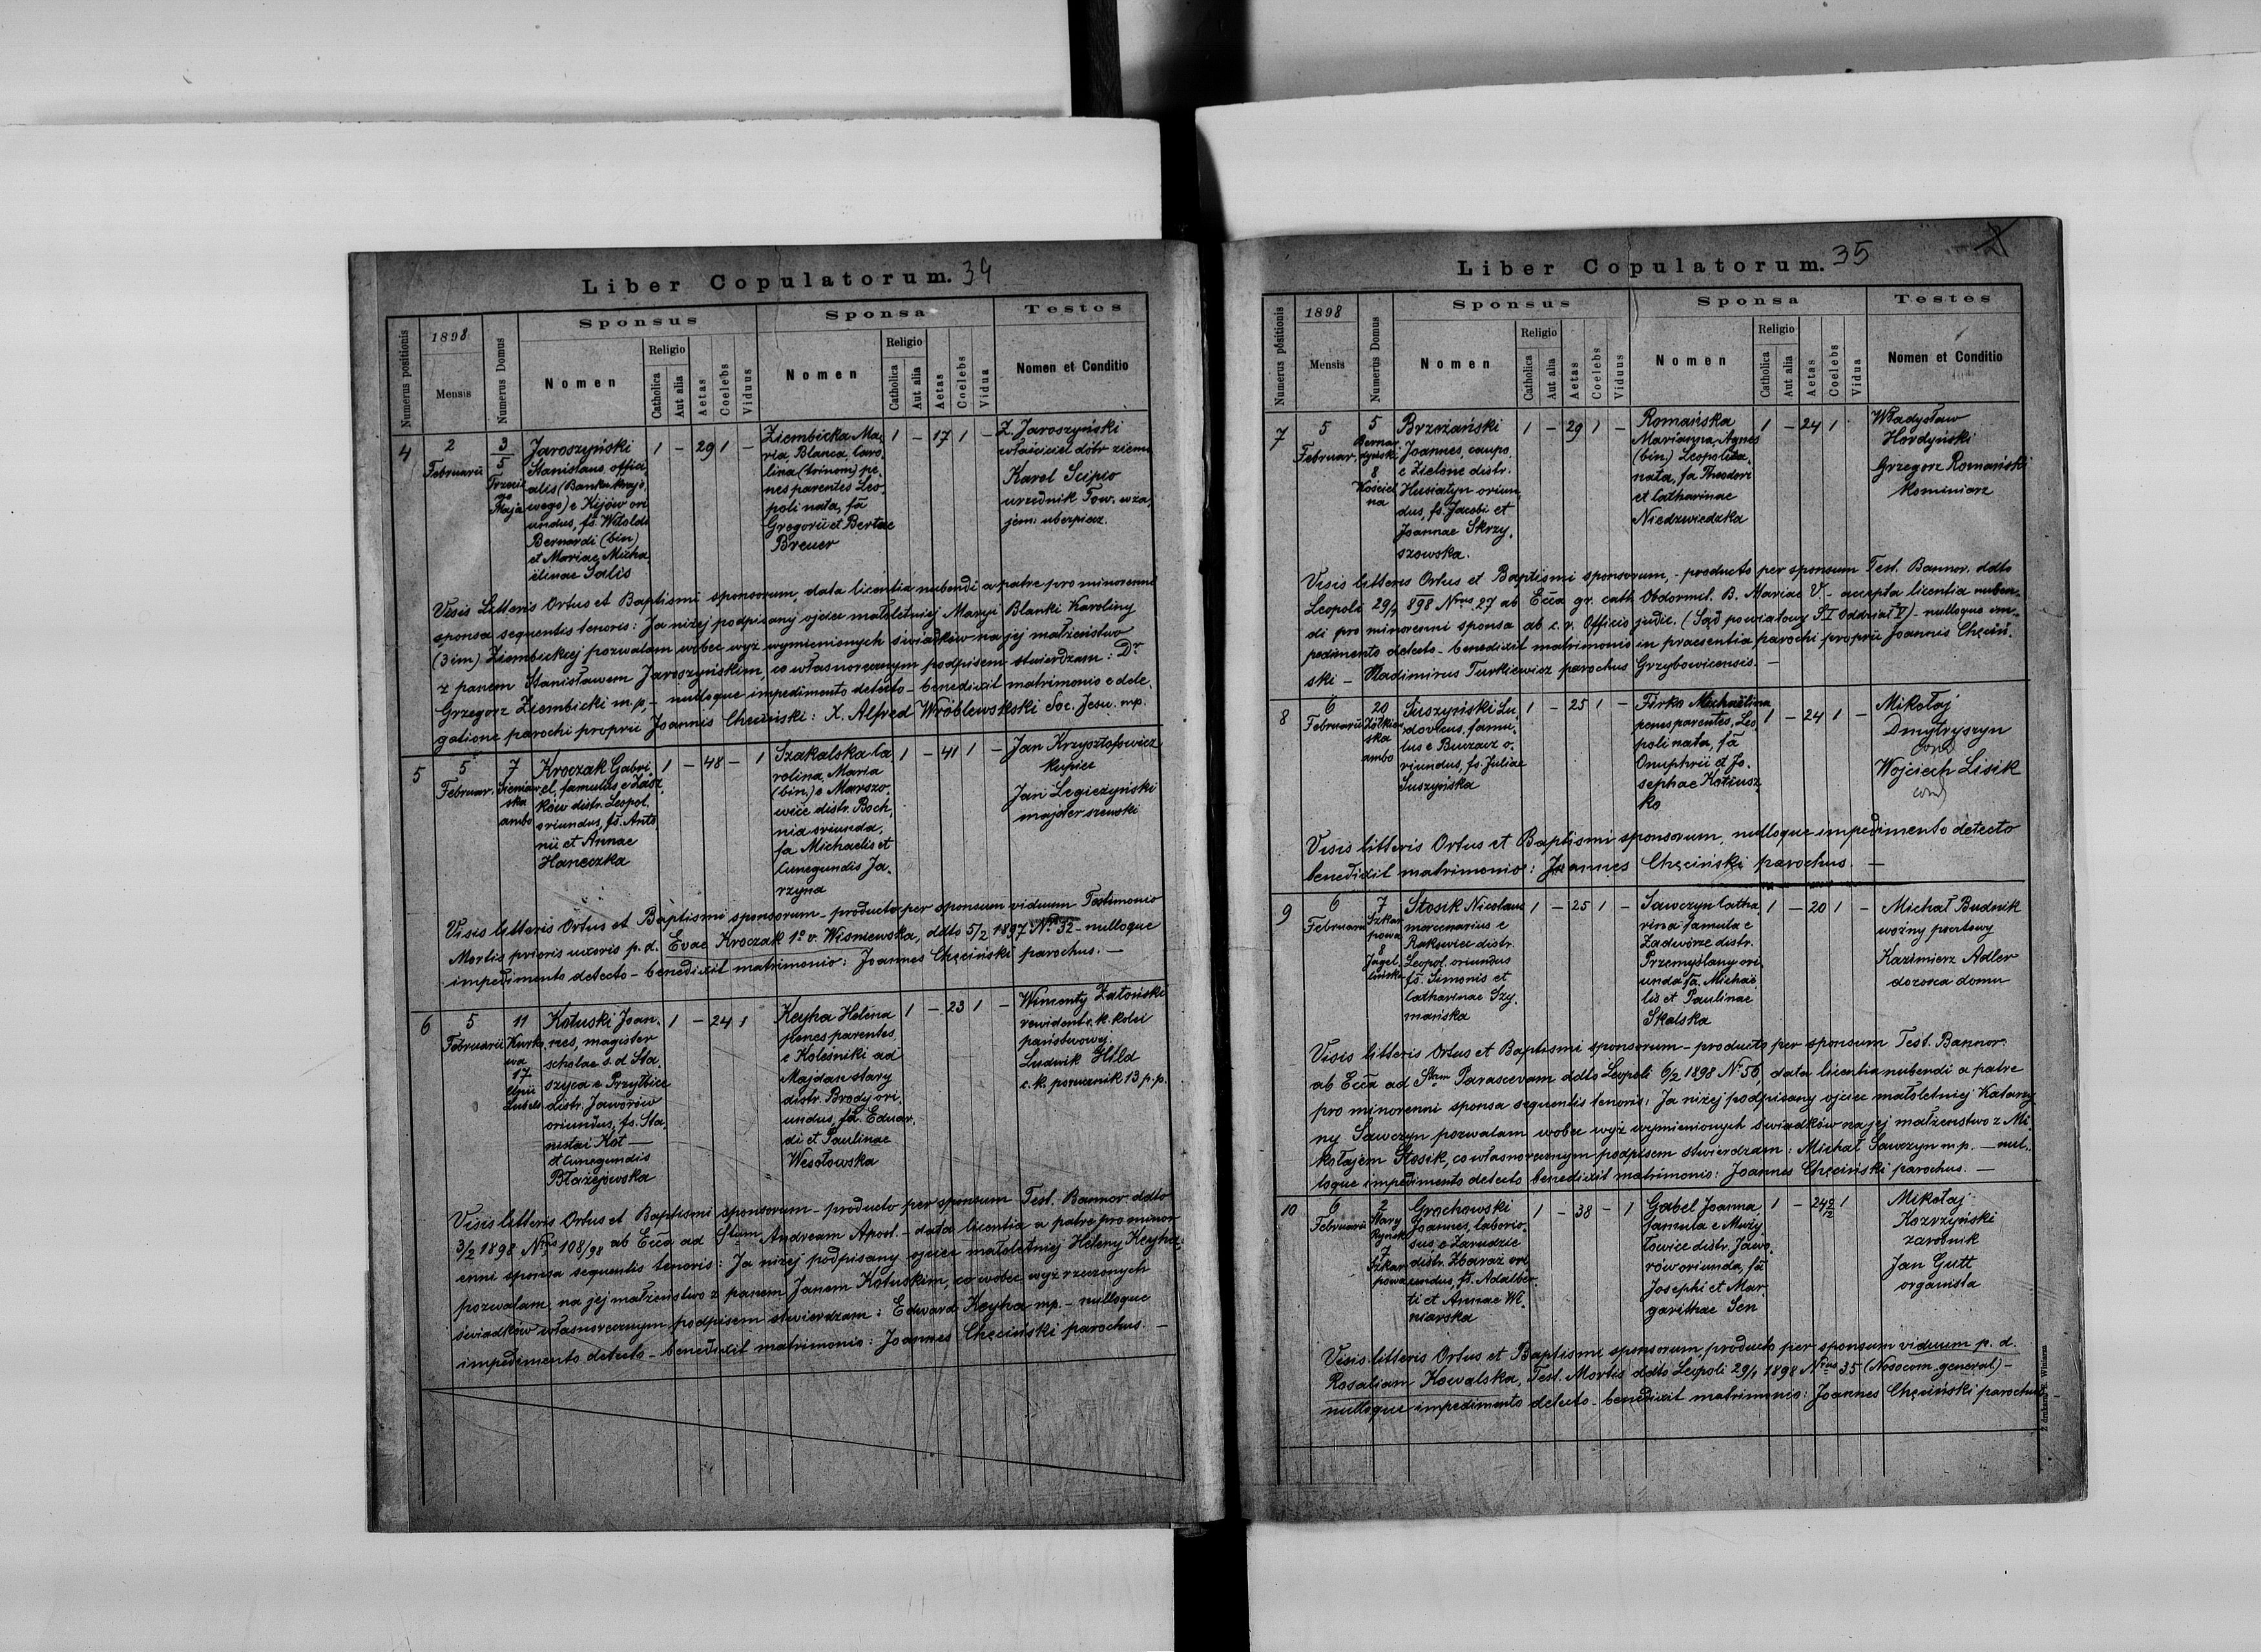 Liber Copulatorum. 34
Numerus positionis
1898
Mensis
Numerus Domus
Sponsus
Nomen
Religio
Catholica
Aut alia
Aetas
Coelebs
Viduus
Sponsa
Nomen
Religio
Catholica
Aut alia
Aetas
Coelebs
Vidua
Testes
Nomen et Conditio
4
2
Februarii
3
5
Trzecie
go
Maja
Jaroszyński
Stanislaus, offici
alis (Banku krajo
wego) e Kijów ori
undus, fs. Witoldi
Bernardi (bin)
et Mariae Micha
elinae Salis
1 – 29 1 –
Ziembicka Ma,
ria, Blanca, Caro,
lina (trinom) pe,
nes parentes Leo,
poli nata, fa
Gregorii et Bertae
Breuer
1 – 17 1 –
Z. Jaroszyński
właściciel dóbr ziems
Karol Scipio
urzędnik Tow. wza,
jem. ubezpiecz.
Visis Litteris Ortus et Baptismi sponsorum, data licentia nubendi a patre pro minorenni
sponsa sequentis tenoris: Ja niżej podpisany ojciec małoletniej Maryi Blanki Karoliny
(3 im) Ziembickiej pozwalam wobec wyż wymienionych świadków na jej małżeństwo
z panem Stanisławem Jaroszyńskim, co własnoręcznym podpisem stwierdzam: Dr
Grzegorz Ziembicki m.p, – nulloque impedimento detecto – benedixit matrimonio e dele,
gatione parochi proprii Joannis Chęciński: X. Alfred Wróblewskski Soc. Jesu. mp.
5
5
Februar.
7
Sieniaw
ska
ambo
Kroczak Gabri,
el, famulus e Zasz
ków distr. Leopol.
oriundus, fs. Anto
nii et Annae
Haneczka
1 – 48 – 1
Szakalska Ca
rolina, Maria
(bin.) e Marszo,
wice distr. Boch,
nia oriunda,
fa Michaelis et
Cunegundis Ja,
rzyna
1 – 41 1 –
Jan Krzysztofowicz
kupiec
Jan Legieżyński
majster szewski
Visis litteris Ortus et Baptismi sponsorum – producto per sponsum viduum Testimonio
Mortis prioris uxoris p. d. Evae Kroczak 1º v. Wiśniewska, ddto 5/2 1897 Nº 32 – nulloque
impedimento detecto – benedixit matrimonio: Joannes Chęciński parochus. –
6
5
Februarii
11
Kurko
wa
17
Unii
Lubels
Kotuski Joan,
nes, magister
scholae s. d. Sta,
szyca e Przyłbice
distr. Jaworów
oriundus, fs. Sta,
nislai Kot —
et Cunegundis
Błażejowska
1 – 24 1
Keyha Helena
penes parentes
e Koleśniki ad
Majdan stary
distr. Brody ori,
undus, fa. Eduar,
di et Paulinae
Wesołowska
1 – 23 1 –
Wincenty Zatoński
rewident c. k. kolei
państwowy.
Ludwik Hild
c. k. porucznik 13 p. p.
Visis litteris Ortus et Baptismi sponsorum – producto per sponsum Test. Bannor ddto
3/2 1898 Nro 108/98 ab Ecca ad Stum Andream Apost. – data licentia a patre pro minor
enni sponsa sequentis tenoris: Ja niżej podpisany ojciec małoletniej Heleny Keyha
pozwalam, na jej małżeństwo z panem Janem Kotuskim, co wobec wyż rzeczonych
świadków własnoręcznym podpisem stwierdzam: Edward Keyha mp. – nulloque
impedimento detecto – benedixit matrimonio: Joannes Chęciński parochus. –
Liber Copulatorum. 35
Numerus positionis
1898
Mensis
Numerus Domus
Sponsus
Nomen
Religio
Catholica
Aut alia
Aetas
Coelebs
Viduus
Sponsa
Nomen
Religio
Catholica
Aut alia
Aetas
Coelebs
Vidua
Testes
Nomen et Conditio
7
5
Februar.
5
Bernar
dyński
8
Kościel
na
Brzeżański
Joannes, caupo,
e Zielone distr.
Husiatyn oriun,
dus, fs. Jacobi et
Joannae Skrzy,
szowska.
1 – 29 1 –
Romańska
Marianna, Agnes
(bin) Leopoli
nata, fa Theodori
et Catharinae
Niedzwiedzka
1 – 24 1
Władysław
Hordyński
Grzegorz Romański
kominiarz
Visis litteris Ortus et Baptismi sponsorum, – producto per sponsum Test. Bannor. ddto
Leopoli 29/1 898 Nrus 27 ab Ecca gr. cath. Obdormit. B. Mariae V. – accepta licentia nuben,
di pro minorenni sponsa ab c. r. Officio judic. (Sąd powiatowy S I Oddział V) – nulloque im,
pedimento detecto – benedixit matrimonio in praesentia parochi proprii Joannis Chęciń,
ski – Vladimirus Turkiewicz parochus Grzybowicensis. –
8
6
Februarii
20
Żółkiew
ska
ambo
Suszyński Lu,
dovicus, famu,
lus e Buczacz o,
riundus, fs. Juliae
Suszyńska
1 – 25 1 –
Firko Michaëlina
penes parentes, Leo
poli nata, fa
Onuphrii et Jo,
sephae Kościusz
ko
1 – 24 1 –
Mikołaj
Dmytryszyn
Wojciech Lisik
Visis litteris Ortus et Baptismi sponsorum, nulloque impedimento detecto
benedixit matrimonio: Joannes Chęciński parochus. –
9
6
Februarii
7
Szkar
powa
8
Jagel
lońska
Stosik Nicolaus
mercenarius e
Rakowiec distr.
Leopol. oriundus
fs. Simonis et
Catharinae Szy,
mańska
1 – 25 1 –
Sawczyn Catha,
rina famula e
Zadwórze distr.
Przemyślany ori,
unda fa. Michaë
lis et Paulinae
Skalska
1 – 20 1 –
Michał Budnik
woźny pocztowy
Kazimierz Adler
dozorca domu
Visis litteris Ortus et Baptismi sponsorum – producto per sponsum Test. Bannor.
ab Ecca ad Stam Parascevam ddto Leopoli 6/2 1898 Nº 56, data licentia nubendi a patre
pro minorenni sponsa sequentis tenoris: Ja niżej podpisany ojciec małoletniej Katarzy
ny Sawczyn pozwalam wobec wyż wymienionych świadków na jej małżeństwo z Mi,
kołajem Stosik, co własnoręcznym podpisem stwierdzam: Michał Sawczyn mp. – nul,
loque impedimento detecto benedixit matrimonio: Joannes Chęciński parochus. –
10
6
Februarii
2
Stary
Rynek
7
Szkar
powa
Grochowski
Joannes, laborio,
sus e Zarudzie
distr. Zbaraż ori
undus, fs. Adalber,
ti et Annae Wi,
niarska
1 – 38 – 1
Gabel Joanna,
famula e Muży
łowice distr. Jawo,
rów oriunda, fa
Josephi et Mar,
garithae Sen
1 – 24 1
Mikołaj
Kozrzyński
zarobnik
Jan Gutt
organista
Visis litteris Ortus et Baptismi sponsorum, producto per sponsum viduum p. d.
Rosaliam Kowalska, Test. Mortis ddto Leopoli 29/1 1898 Nrus 35 (Nosocom. general.) –
nulloque impedimento detecto – benedixit matrimonio: Joannes Chęciński parochus –
Z drukarni E. Winiarza